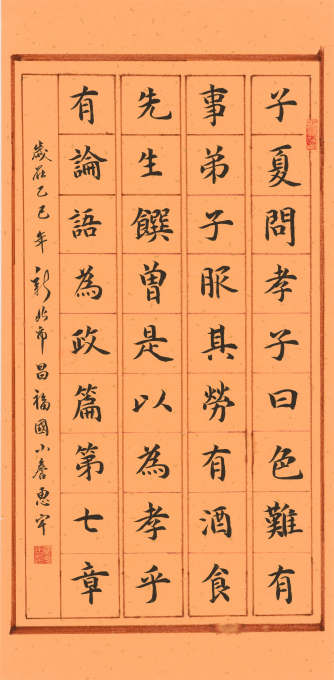 子夏問孝子曰色難有
事弟子服其勞有酒食
先生饌曾是以為孝乎
有論語為政篇第七章
歲在乙巳年新北市昌福國小詹惠宇